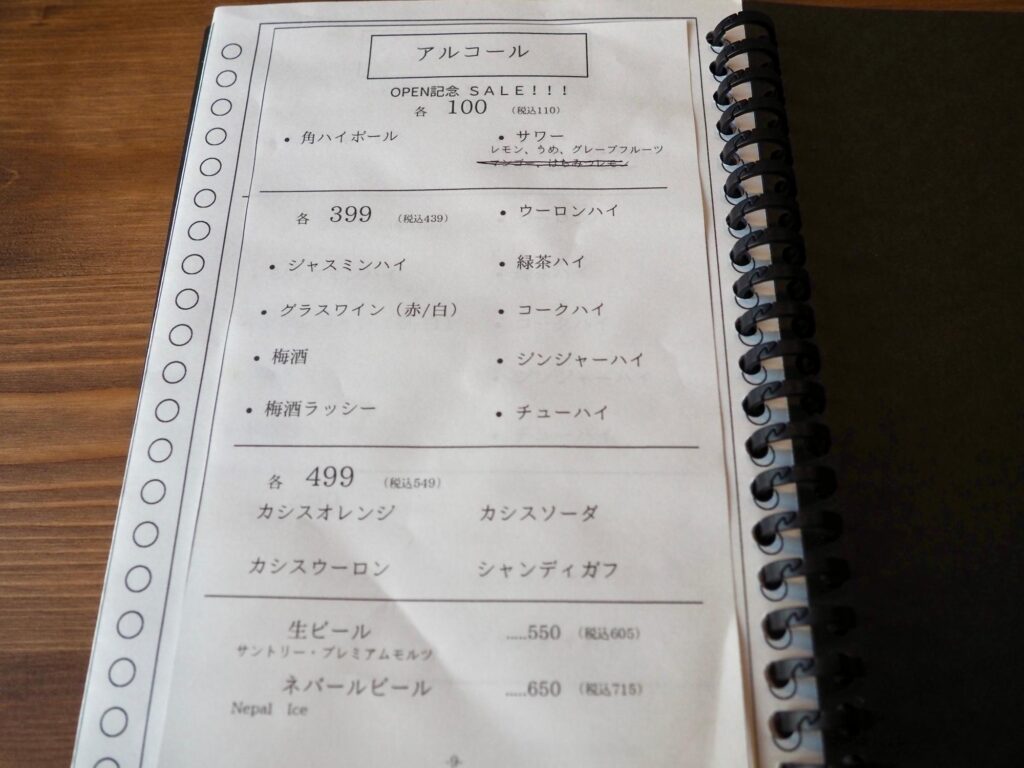 アルコール
OPEN記念 SALE！！！
各 100 （税込110）
・角ハイボール
・サワー
レモン、うめ、グレープフルーツ
マンゴー、はちみつレモン
各 399 （税込439）
・ウーロンハイ
・ジャスミンハイ
・緑茶ハイ
・グラスワイン（赤/白）
・コークハイ
・梅酒
・ジンジャーハイ
・梅酒ラッシー
・チューハイ
各 499 （税込549）
カシスオレンジ
カシスソーダ
カシスウーロン
シャンディガフ
生ビール .....550 （税込605）
サントリー・プレミアムモルツ
ネパールビール .....650 （税込715）
Nepal Ice
-9-